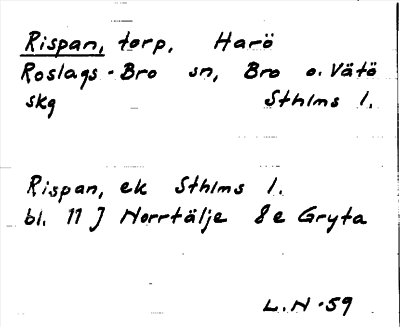 Rispan, torp, Harö
Roslags-Bro sn, Bro o. Vätö
skg Sthlms l.
Rispan, ek Sthlms l.
bl. 11 J Norrtälje 8e Gryta
L.N-59